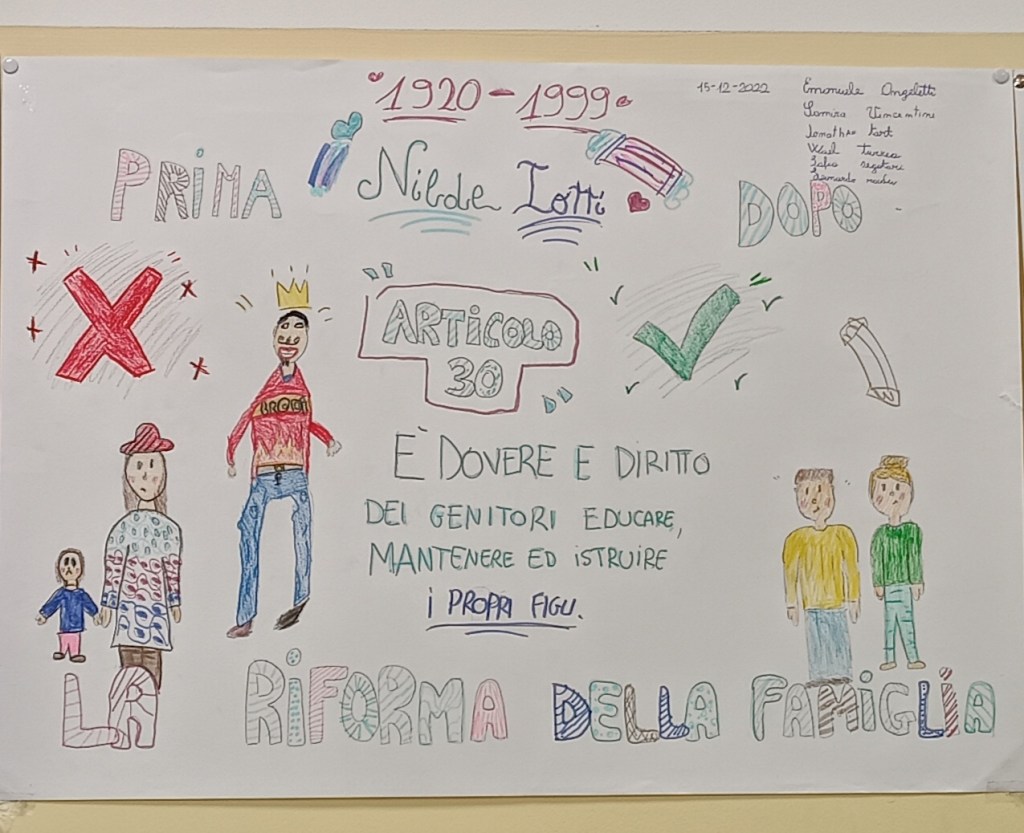 1920-1999
15-12-2022
Emanuele Angeletti
Samira Vincentini
PRIMA
Nilde Iotti
DOPO
ARTICOLO
30
È DOVERE E DIRITTO
DEI GENITORI EDUCARE,
MANTENERE ED ISTRUIRE
i PROPRI FIGLI.
LA RIFORMA DELLA FAMIGLIA